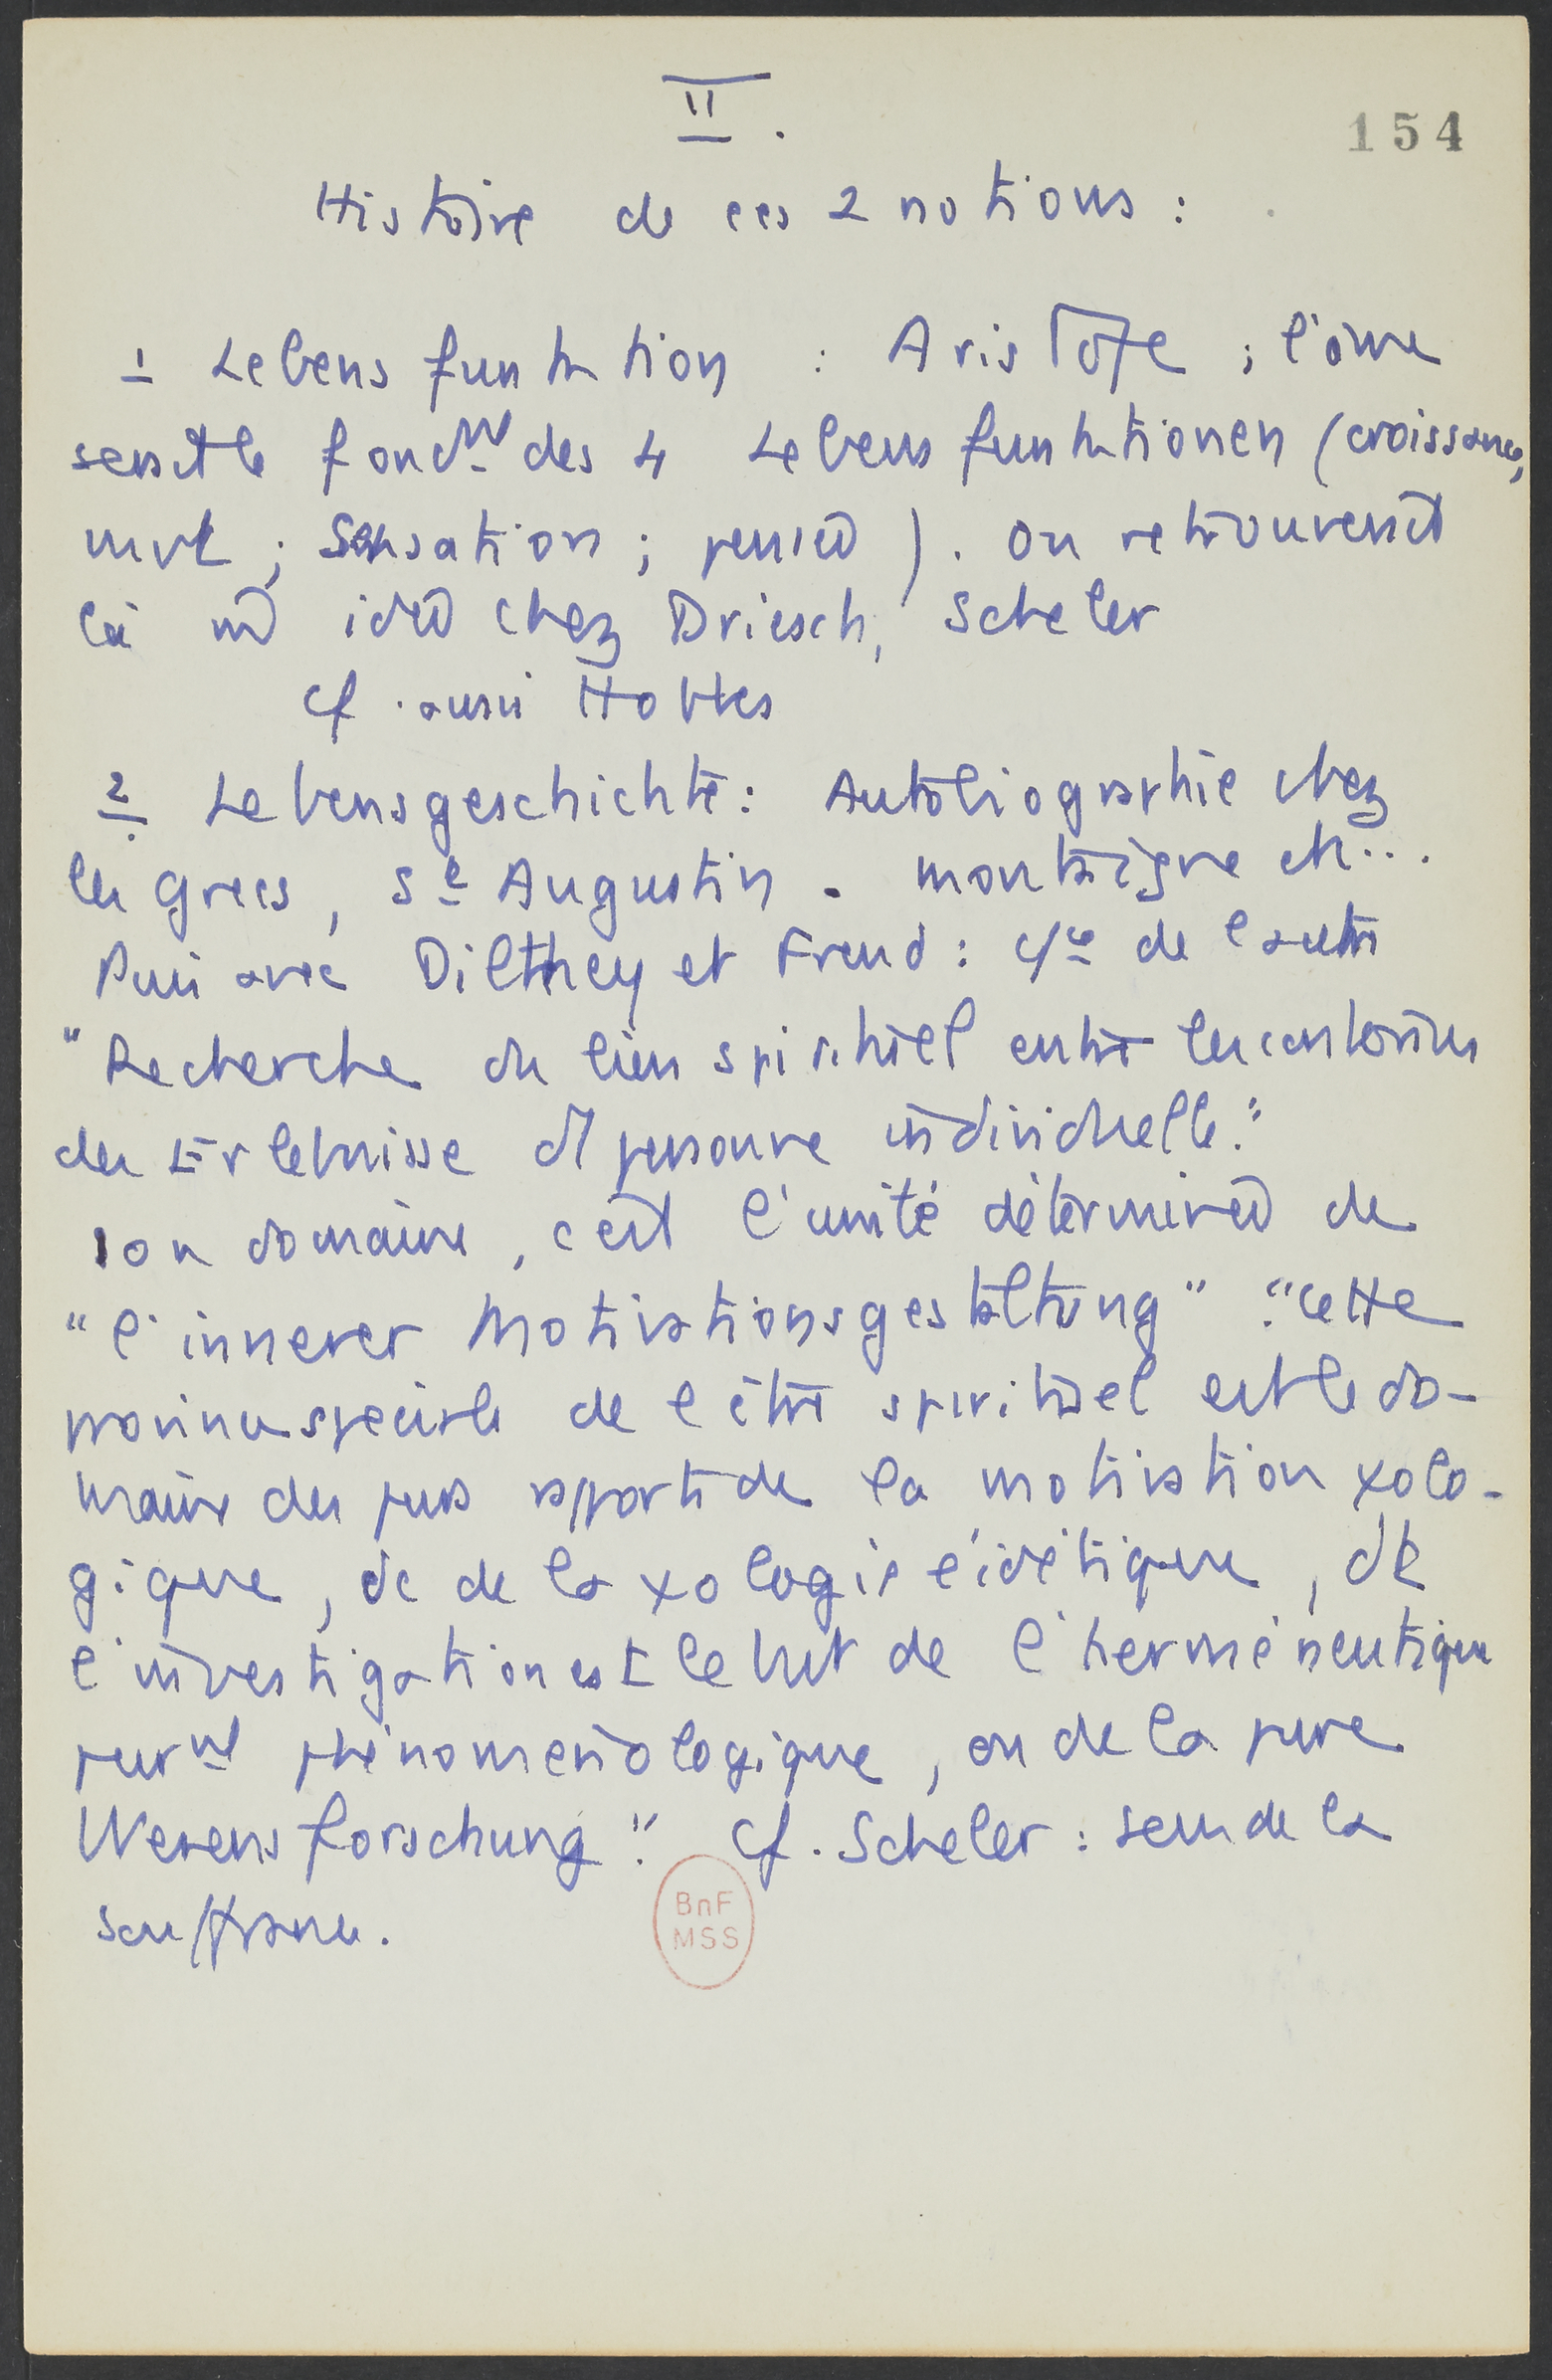 II.
154
Histoire de ces 2 notions :
1 Lebensfunktion : Aristote ; l'âme
serait le fondt des 4 Lebensfunktionen (croissance,
mvt ; sensation ; pensée). On retrouverait
là m̂ idée chez Driesch, Scheler
cf. aussi Hobbes
2 Lebensgeschichte : Autobiographie chez
les grecs, St Augustin. Montaigne etc...
Puis avec Dilthey et Freud : de l'autre
"Recherche du lien spirituel entre les contenus
des Erlebnisse d'1 personne individuelle."
son domaine, c'est l'unité déterminée de
"l'innerer Motivationsgestaltung". "Cette
province spéciale de l'être spirituel est le do-
maine des purs rapports de la motivation χolo-
gique, dc de la χologie eidétique, dt
l'investigation est le but de l'herméneutique
purmt phénoménologique, ou de la pure
Wesensforschung." cf. Scheler : sens de la
souffrance.
BnF
MSS